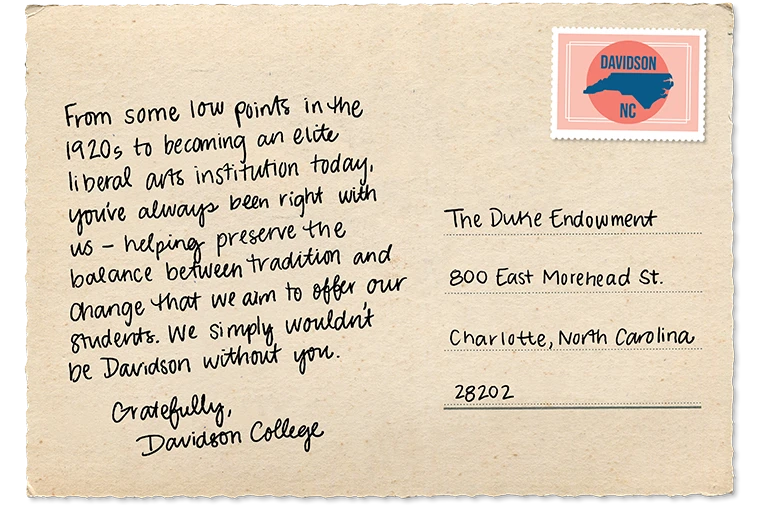 From some low points in the
1920s to becoming an elite
liberal arts institution today,
you've always been right with
us – helping preserve the
balance between tradition and
change that we aim to offer our
students. We simply wouldn't
be Davidson without you.
Gratefully,
Davidson College
DAVIDSON
NC
The Duke Endowment
800 East Morehead St.
Charlotte, North Carolina
28202